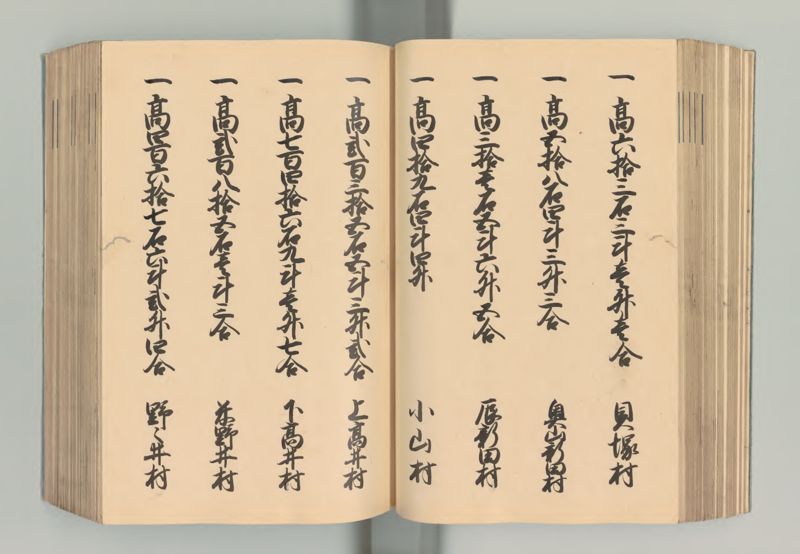 一高六拾三石三斗壱升壱合 貝塚村
一高五拾八石四斗三升三合 奥山新田村
一高三拾壱石五斗六升五合 辰新田村
一高四拾九石四斗四升 小山村
一高弐百三拾五石五斗三升弐合 上高井村
一高七百四拾六石九斗壱升七合 下高井村
一高弐百八拾五石壱斗三合 野井村
一高四百六拾七石六斗弐升四合 野々井村